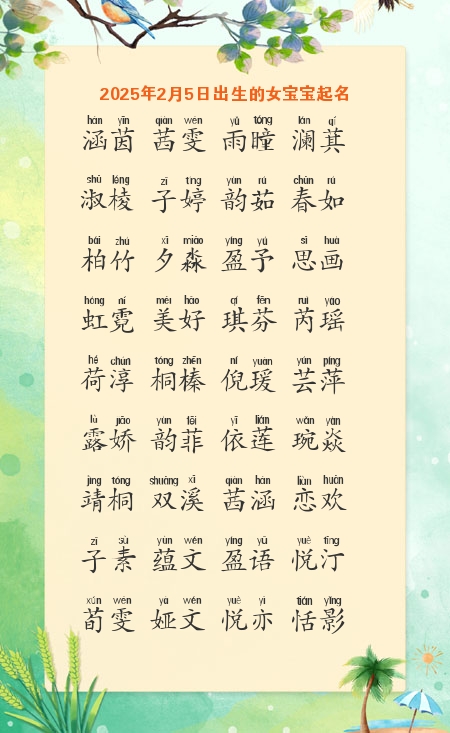 2025年2月5日出生的女宝宝起名
hán yīn qiàn wén yǔ tóng lán qí
涵茵 茜雯 雨瞳 澜萁
shū léng zǐ tíng yùn rú chūn rú
淑棱 子婷 韵茹 春如
bǎi zhú xī miǎo yíng yǔ sī huà
柏竹 夕淼 盈予 思画
hóng ní měi hǎo qí fēn ruì yáo
虹霓 美好 琪芬 芮瑶
hé chún tóng zhēn ní yuàn yún píng
荷淳 桐榛 倪瑗 芸萍
lù jiāo yùn fēi yī lián wǎn yàn
露娇 韵菲 依莲 琬焱
jìng tóng shuāng xī qiàn hán liàn huān
靖桐 双溪 茜涵 恋欢
zǐ sù yùn wén yíng yǔ yuè tīng
子素 蕴文 盈语 悦汀
xún wén yà wén yuè yì tián yǐng
荀雯 娅文 悦亦 恬影